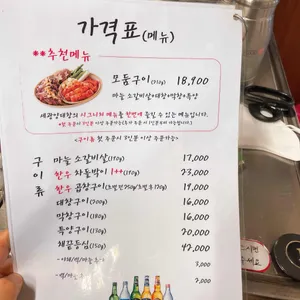 가격표(메뉴)
**추천메뉴
모둠구이(750g) 18,900
마늘 소갈비살+대창+막창+특양
세광양대창의 시그니처 메뉴를 한번에 즐길 수 있는 메뉴입니다.
<구이류 첫 주문시 3인분 이상 주문가능>
구이류
마늘 소갈비살(170g) 17,000
한우 차돌박이 1++(150g) 23,000
한우 곱창구이 19,000
대창구이(200g) 16,000
막창구이(180g) 16,000
특양구이(170g) 20,000
채끝등심(150g) 42,000
3,000
2,000